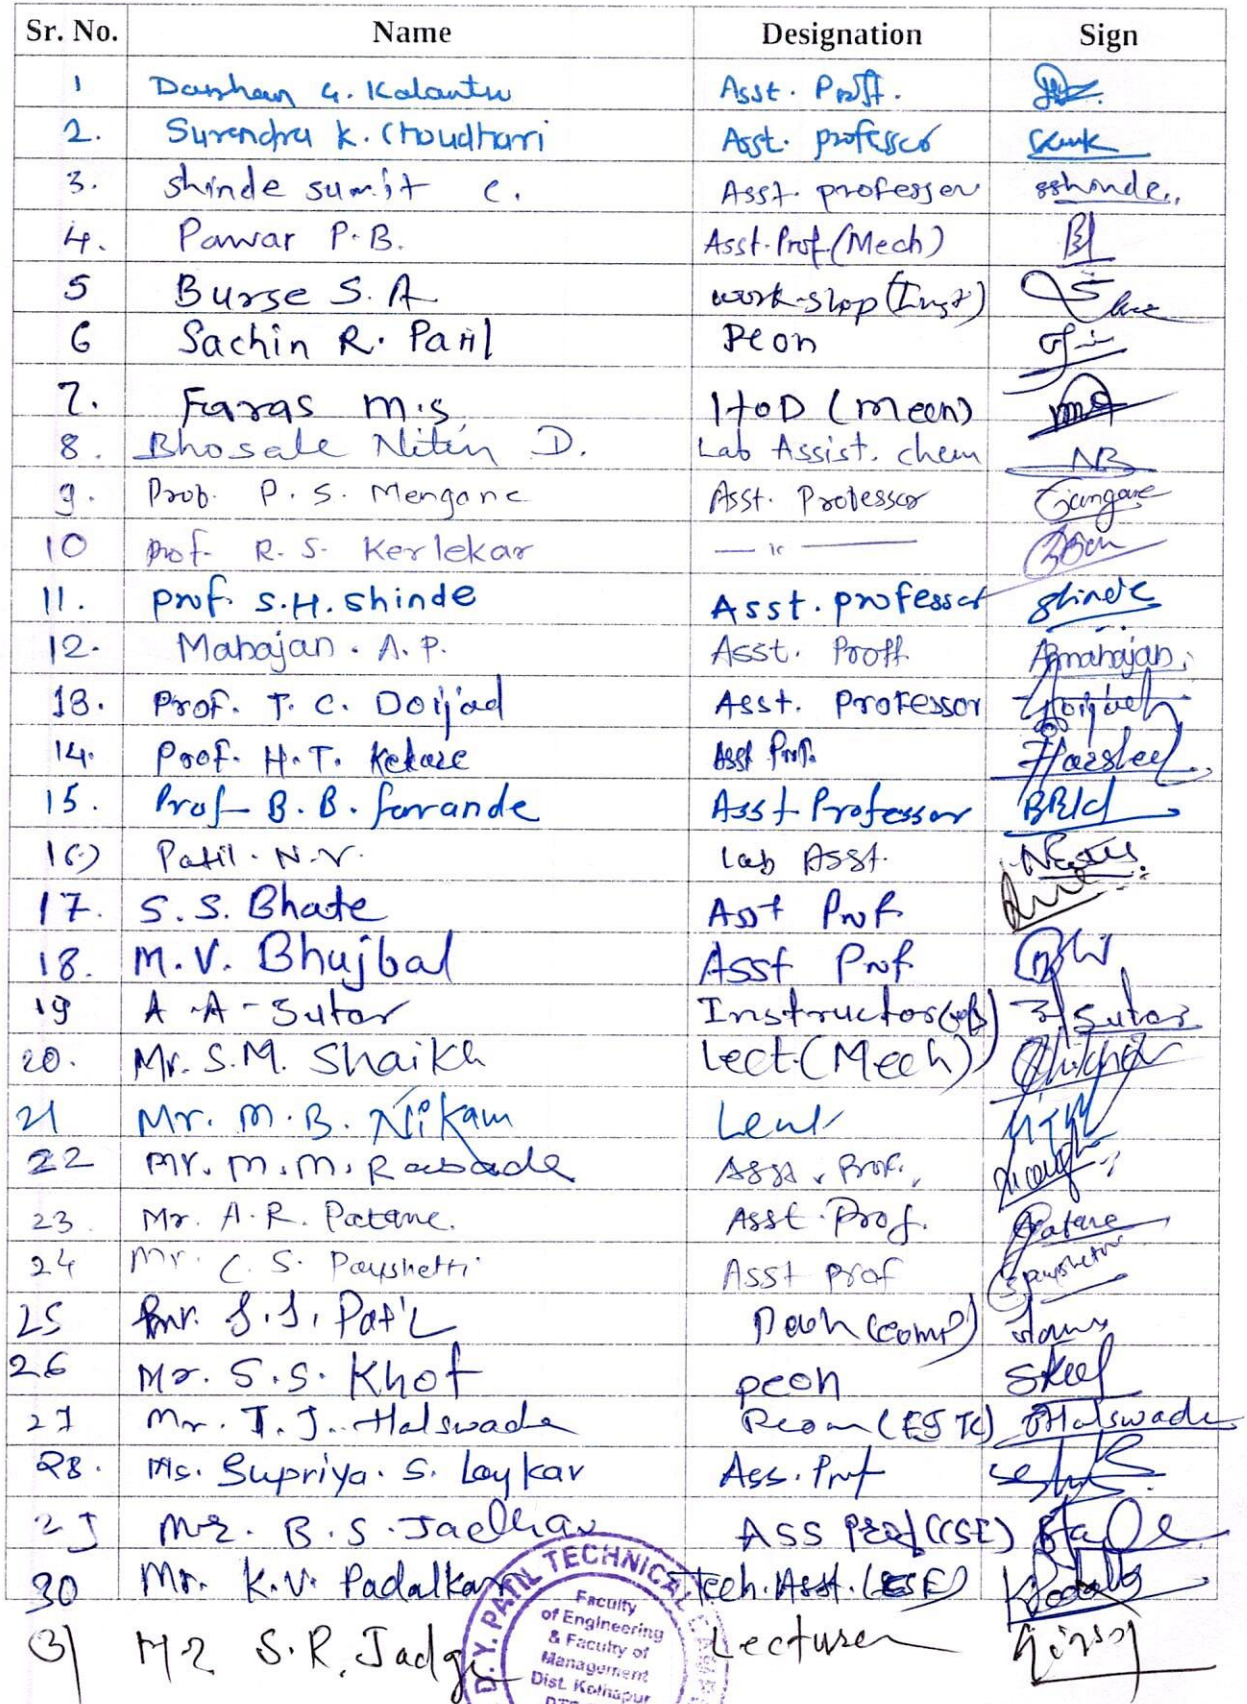 Sr. No. Name Designation Sign
1 Darshan G. Kalantre Asst. Proff.
2. Surendra K. Choudhari Asst. professor
3. Shinde sumit C. Asst. professor sshinde.
4. Pawar P.B. Asst. Prof. (Mech)
5 Burse S.A work-shop (Inst)
6 Sachin R. Patil Peon
7. Faras M.S. HOD (Mech)
8. Bhosale Nitin D. Lab Assist. chem NB
9. Prof. P.S. Mengane Asst. Professor
10 Prof. R.S. Kerlekar — 11 —
11. Prof. S.H. Shinde Asst. professor Shinde
12. Mahajan. A.P. Asst. Proff. APmahajan
13. Prof. T.C. Doijad Asst. Professor Doijad
14. Prof. H.T. Asst Prof.
15. Prof B.B. Farande Asst Professor
16) Patil. N.V. Lab Asst.
17. S.S. Bhate Asst Prof.
18. M.V. Bhujbal Asst Prof.
19 A.A-Sutar Instructor Sutar
20. Mr. S.M. Shaikh Lect. (Mech)
21 Mr. M.B. Nikam Lect
22 Mr. M.M. Rabade Asst. Prof.
23. Mr. A.R. Patane. Asst. Prof. Patane
24 Mr. C.S. Payshetti Asst prof Payshetti
25 Mr. S.S. Patil Peon (comp)
26 Mr. S.S. Khot peon
27 Mr. T.J. Halswade Peon (E&TC) Halswade
28. Ms. Supriya. S. Laykar Ass. Prof
29 Mr. B.S. Jadhav ASS Prof (CSE)
30 Mr. K.V. Padalkar Tech. Asst. (CSE)
31 Mr S.R. Lecturer
D.Y. PATIL TECHNICAL
Faculty
of Engineering
& Faculty of
Management
Dist. Kolhapur